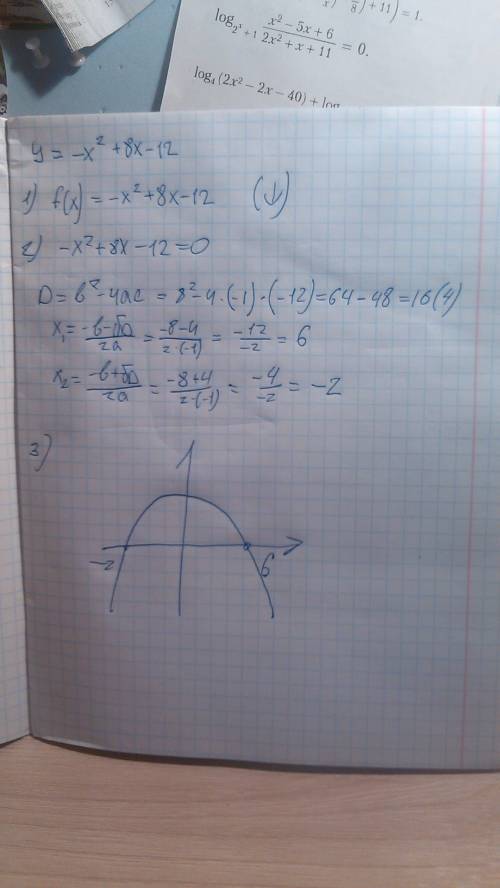 x) 8) + 11) = 1.
log_{2^x+1} \frac{x² − 5x + 6}{2x² + x + 11} = 0.
log₄(2x² − 2x − 40) + log
y = -x² + 8x - 12
1) f(x) = -x² + 8x - 12 (↓)
2) -x² + 8x - 12 = 0
D = b² - 4ac = 8² - 4·(-1)·(-12) = 64 - 48 = 16 (4)
x₁ = \frac{-b-√D}{2a} = \frac{-8-4}{2·(-1)} = \frac{-12}{-2} = 6
x₂ = \frac{-b+√D}{2a} = \frac{-8+4}{2·(-1)} = \frac{-4}{-2} = -2
3)
-2 6